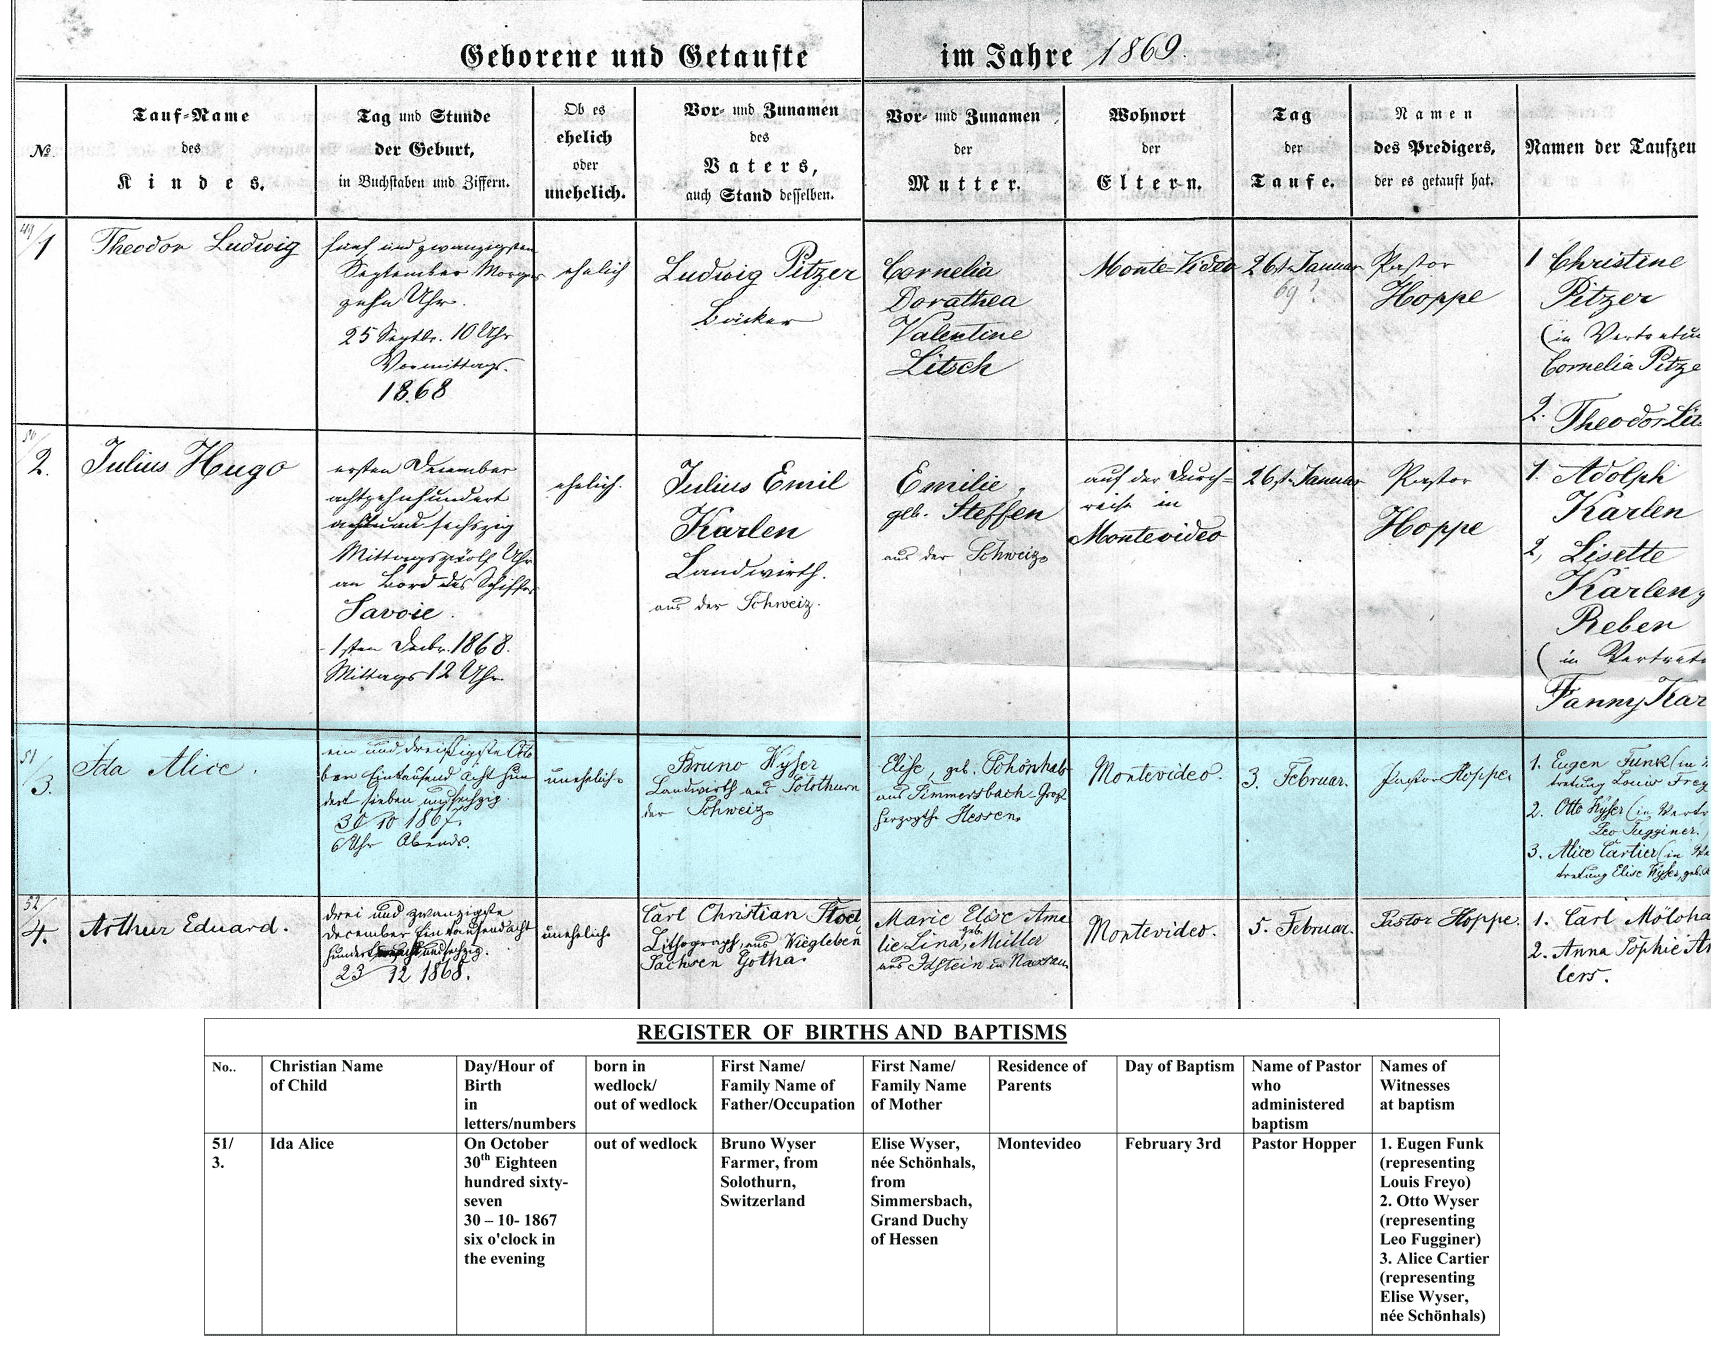 Geborene und Getaufte im Jahre 1869.
№
Tauf-Name
des
Kindes.
Tag und Stunde
der Geburt,
in Buchstaben und Ziffern.
Ob es
ehelich
oder
unehelich.
Vor- und Zunamen
des
Vaters,
auch Stand desselben.
Vor- und Zunamen
der
Mutter.
Wohnort
der
Eltern.
Tag
der
Taufe.
Namen
des Predigers,
der es getauft hat.
Namen der Taufzeu
49/1
Theodor Ludwig
fünf und zwanzigsten
September Morgens
zehn Uhr.
25 Septbr. 10 Uhr
Vormittags.
1868
ehelich
Ludwig Pitzer
Bäcker
Cornelia
Dorathea
Valentine
Litsch
Monte-Video
26st. Januar
69?
Pastor
Hoppe
1 Christine
Pitzer
(in Vertretun
Cornelia Pitze
2. Theodor Lit
50/2.
Julius Hugo
ersten December
achtzehnhundert
achtund sechszig
Mittags zwölf Uhr
an Bord des Schiffes
Savoie.
1sten Decbr. 1868.
Mittags 12 Uhr
ehelich.
Julius Emil
Karlen
Landwirth.
aus der Schweiz.
Emilie,
geb. Steffen
aus der Schweiz.
auf der Durch=
reise in
Montevideo
26st. Januar
Pastor
Hoppe
1. Adolph
Karlen
2, Lisette
Karlen g
Reber
(in Vertret
Fanny Kar
51/3.
Ida Alice.
ein und dreißigste Octo
ber Eintausend acht hun
dert sieben undsechzig.
30/10 1867.
6 Uhr Abends.
unehelich.
Bruno Wyser
Landwirth aus Solothurn
der Schweiz.
Elise, geb. Schönhals
aus Simmersbach Groß
herzogth. Hessen.
Montevideo.
3. Februar.
Pastor Hoppe
1. Eugen Funk (in
tretung Louis Frey
2. Otto Wyser (in Vertr
Leo Tugginer.)
3. Alice Cartier (in Ve
tretung Elise Wyser, geb.
52/4.
Arthur Eduard.
drei und zwanzigste
December Eintausend acht
hundert undsechzig.
23/12 1868.
unehelich
Carl Christian
Lithograph, aus Wiegleben
Sachsen Gotha.
Marie Elise Ama
lie Lina, geb. Müller
aus Idstein in Nassau
Montevideo.
5. Februar.
Pastor Hoppe.
1. Carl
2. Anna Sophie
lers.
REGISTER OF BIRTHS AND BAPTISMS
No..
Christian Name
of Child
Day/Hour of
Birth
in
letters/numbers
born in
wedlock/
out of wedlock
First Name/
Family Name of
Father/Occupation
First Name/
Family Name
of Mother
Residence of
Parents
Day of Baptism
Name of Pastor
who
administered
baptism
Names of
Witnesses
at baptism
51/
3.
Ida Alice
On October
30th Eighteen
hundred sixty-
seven
30 – 10- 1867
six o'clock in
the evening
out of wedlock
Bruno Wyser
Farmer, from
Solothurn,
Switzerland
Elise Wyser,
née Schönhals,
from
Simmersbach,
Grand Duchy
of Hessen
Montevideo
February 3rd
Pastor Hopper
1. Eugen Funk
(representing
Louis Freyo)
2. Otto Wyser
(representing
Leo Fugginer)
3. Alice Cartier
(representing
Elise Wyser,
née Schönhals)